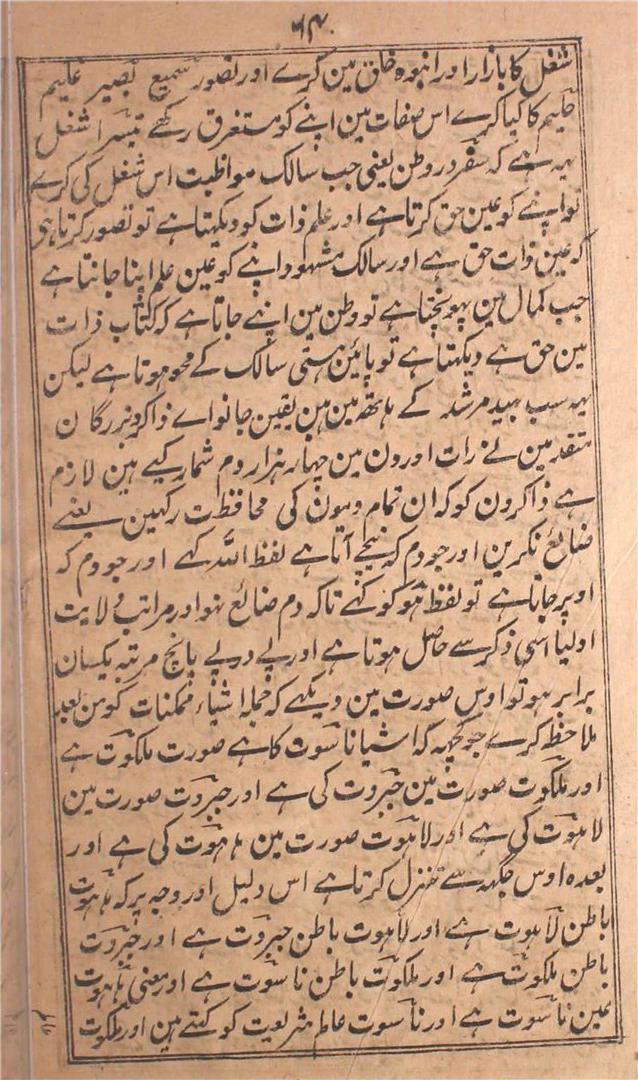 ۶۴
شغل کا بازار اور انبوہ خلق مین کرے اور تصور سمیع بصیر علیم
حکیم کا کیا کرے اس صفات مین اپنے کو مستغرق رکھے تیسرا شغل
یہ ہے کہ سفر در وطن یعنی جب سالک مواظبت اس شغل کی کرے
تو اپنے کو عین حق کرتا ہے اور علم ذات کو دیکھتا ہے تو تصور کرتا ہی
کہ عین ذات حق ہے اور سالک مشہود اپنے کو عین علم اپنا جانتا ہے
جب کمال مین پہونچتا ہے تو وطن مین اپنے جاتا ہے کہ کتاب ذات
مین حق ہے دیکھتا ہے تو پائین ہستی سالک کے محو ہوتا ہے لیکن
یہہ سب بہید مرشد کے ہاتھ مین ہین یقین جانو اے ذاکر بزرگان
متقدمین نے رات اور دن مین چہار ہزار دم شمار کیے ہین لازم
ہے ذاکرون کو کہ ان تمام دمون کی محافظت رکھین یعنے
ضائع نکرین اور جو دم کہ نیچے آتا ہے لفظ اللہ کہے اور جو دم کہ
اوپر جاتا ہے تو لفظ ہو کو کہے تاکہ دم ضائع نہو اور مراتب ولایت
اولیا اسی ذکر سے حاصل ہوتا ہے اور پے درپے پانچ مرتبہ یکسان
برابر ہو تو اوس صورت مین دیکھے کہ جملہ اشیاء ممکنات کو من بعد
ملاحظہ کرے جو کچہہ کہ اشیا ناسوت کا ہے صورت ملکوت ہے
اور ملکوت صورت مین جبروت کی ہے اور جبروت صورت مین
لاہوت کی ہے اور لاہوت صورت مین ہاہوت کی ہے اور
بعدہ اوس جگہہ سے تنزل کرتا ہے اس دلیل اور وجہ پر کہ ہاہوت
باطن لاہوت ہے اور لاہوت باطن جبروت ہے اور جبروت
باطن ملکوت ہے اور ملکوت باطن ناسوت ہے اور معنی ہاہوت
عین ناسوت ہے اور ناسوت عالم شریعت کو کہتے ہین اور ملکوت